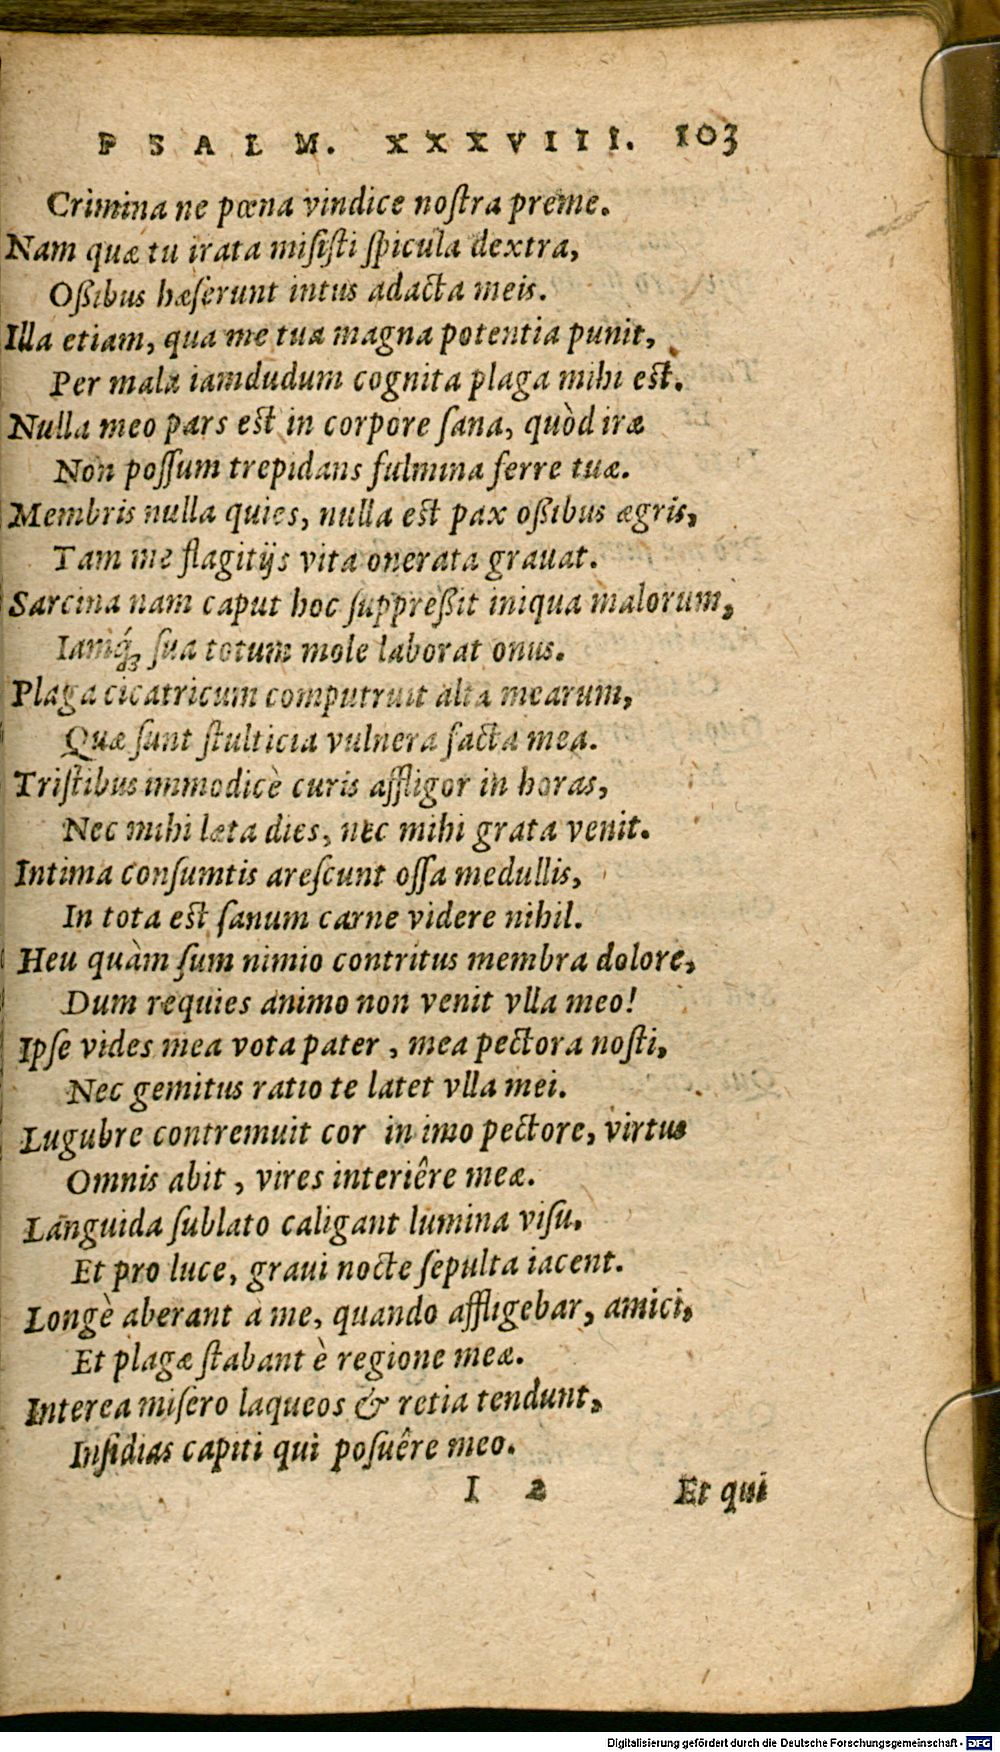 PSALM. XXXVIII. 103
Crimina ne pœna vindice nostra preme.
Nam quæ tu irata misisti spicula dextra,
Oßibus hæserunt intus adacta meis.
Illa etiam, qua me tua magna potentia punit,
Per mala iamdudum cognita plaga mihi est.
Nulla meo pars est in corpore sana, quòd iræ
Non possum trepidans fulmina ferre tuæ.
Membris nulla quies, nulla est pax oßibus ægris,
Tam me flagitijs vita onerata grauat.
Sarcina nam caput hoc suppreßit iniqua malorum,
Iamq́; sua totum mole laborat onus.
Plaga cicatricum computruit alta mearum,
Quæ sunt stulticia vulnera facta mea.
Tristibus immodicè curis affligor in horas,
Nec mihi læta dies, nec mihi grata venit.
Intima consumtis arescunt ossa medullis,
In tota est sanum carne videre nihil.
Heu quàm sum nimio contritus membra dolore,
Dum requies animo non venit vlla meo!
Ipse vides mea vota pater, mea pectora nosti,
Nec gemitus ratio te latet vlla mei.
Lugubre contremuit cor in imo pectore, virtus
Omnis abit, vires interiêre meæ.
Languida sublato caligant lumina visu.
Et pro luce, graui nocte sepulta iacent.
Longè aberant a me, quando affligebar, amici,
Et plagæ stabant è regione meæ.
Interea misero laqueos & retia tendunt,
Insidias capiti qui posuêre meo.
I 2 Et qui
Digitalisierung gefördert durch die Deutsche Forschungsgemeinschaft - DFG